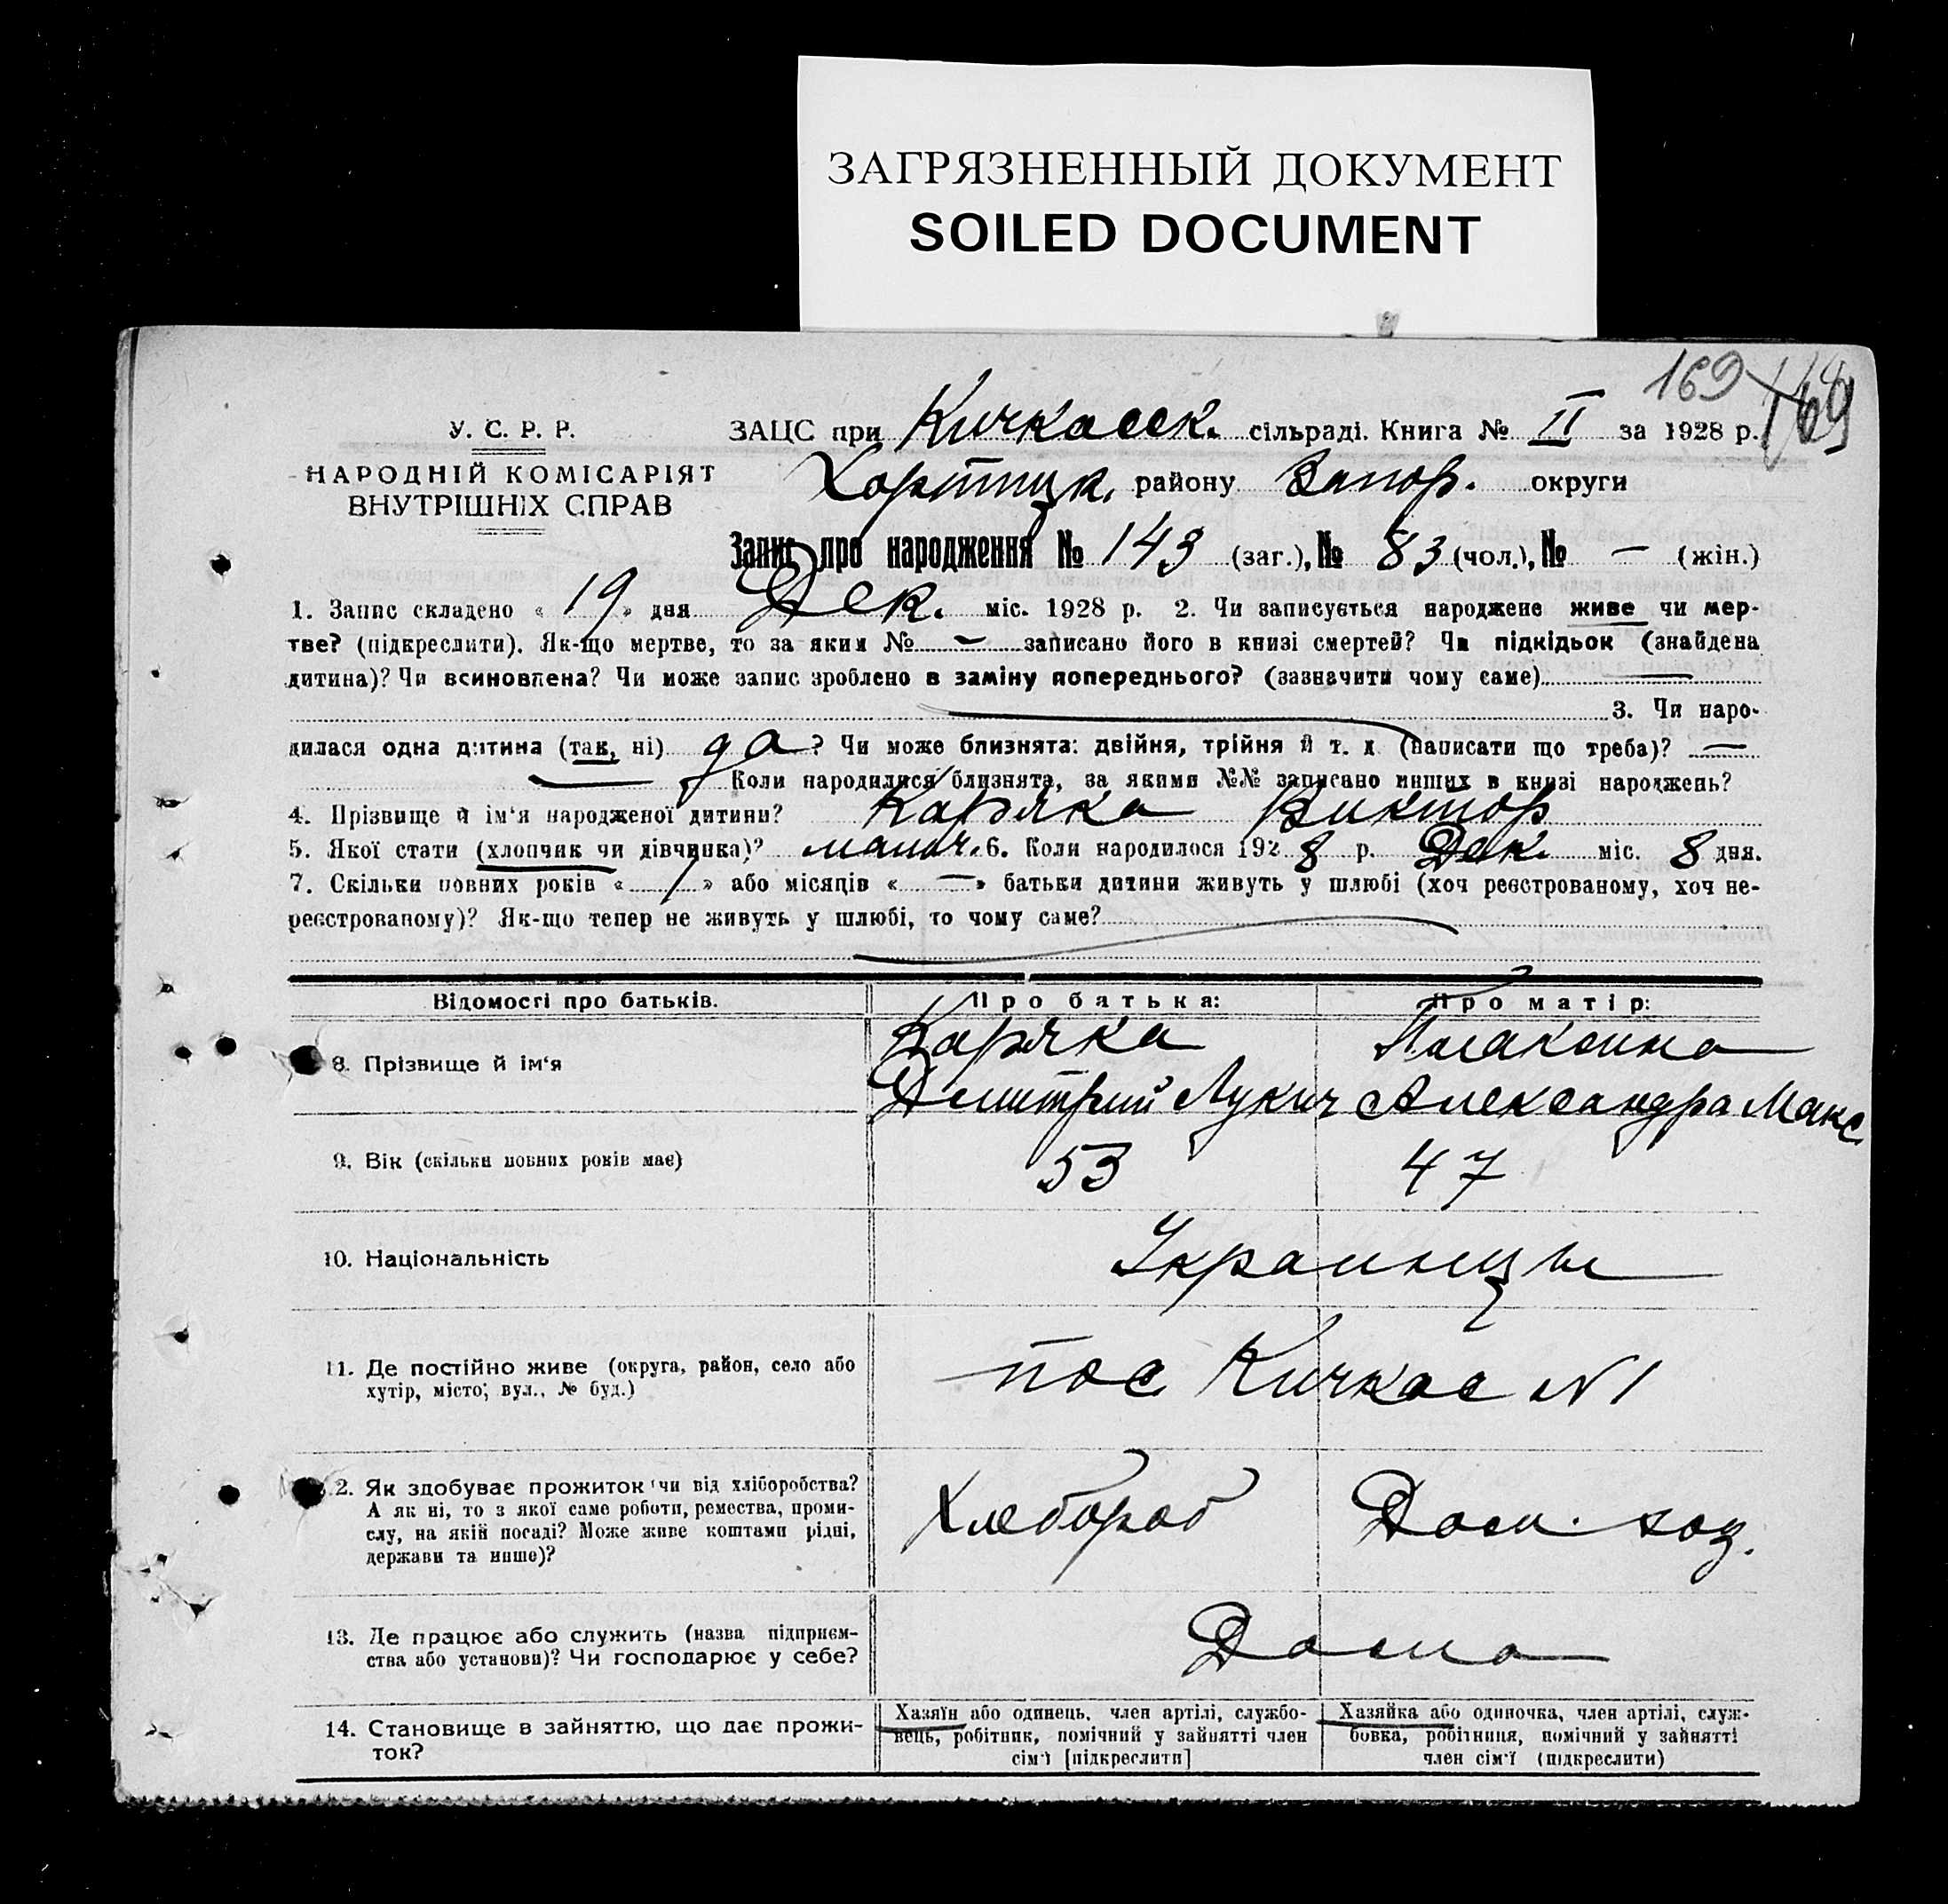 ЗАГРЯЗНЕННЫЙ ДОКУМЕНТ
SOILED DOCUMENT
169 169
У. С. Р. Р.
НАРОДНІЙ КОМІСАРІЯТ
ВНУТРІШНІХ СПРАВ
ЗАЦС при Кичкасск. сільраді. Книга № II за 1928 р.
Хортицк. району Запор. округи
Запис про народження № 143 (заг.), № 83 (чол.), № — (жін.)
1. Запис складено « 19 » дня Дек. міс. 1928 р. 2. Чи записується народжене живе чи мер-
тве? (підкреслити). Як-що мертве, то за яким № — записано його в книзі смертей? Чи підкідьок (знайдена
дитина)? Чи всиновлена? Чи може запис зроблено в заміну попереднього? (зазначити чому саме) —
3. Чи наро-
дилася одна дитина (так, ні) да? Чи може близнята: двійня, трійня й т. д. (написати що треба)? —
— Коли народилися близнята, за якими №№ записано инших в книзі народжень?
4. Прізвище й ім'я народженої дитини? Коряка Виктор
5. Якої стати (хлопчик чи дівчинка)? мальч. 6. Коли народилося 1928 р. Дек. міс. 8 дня.
7. Скільки повних років « / » або місяців « — » батьки дитини живуть у шлюбі (хоч реєстрованому, хоч не-
реєстрованому)? Як-що тепер не живуть у шлюбі, то чому саме?
Відомості про батьків. Про батька: Про матір:
8. Прізвище й ім'я
Коряка
Димитрий Лукич Александра Макс
9. Вік (скільки повних років має) 53 47
10. Національність Украинцы
11. Де постійно живе (округа, район, село або
хутір, місто; вул., № буд.)
пос Кичкас №1
2. Як здобуває прожиток чи від хліборобства?
А як ні, то з якої саме роботи, ремества, проми-
слу, на якій посаді? Може живе коштами рідні,
держави та инше)?
Хлебороб Дом. хоз.
13. Де працює або служить (назва підприєм-
ства або установи)? Чи господарює у себе?
Дома
14. Становище в зайняттю, що дає прожи-
ток?
Хазяїн або одинець, член артілі, службо-
вець, робітник, помічний у зайнятті член
сім'ї [підкреслити]
Хазяйка або одиночка, член артілі, служ-
бовка, робітниця, помічний у зайнятті
член сім'ї (підкреслити)